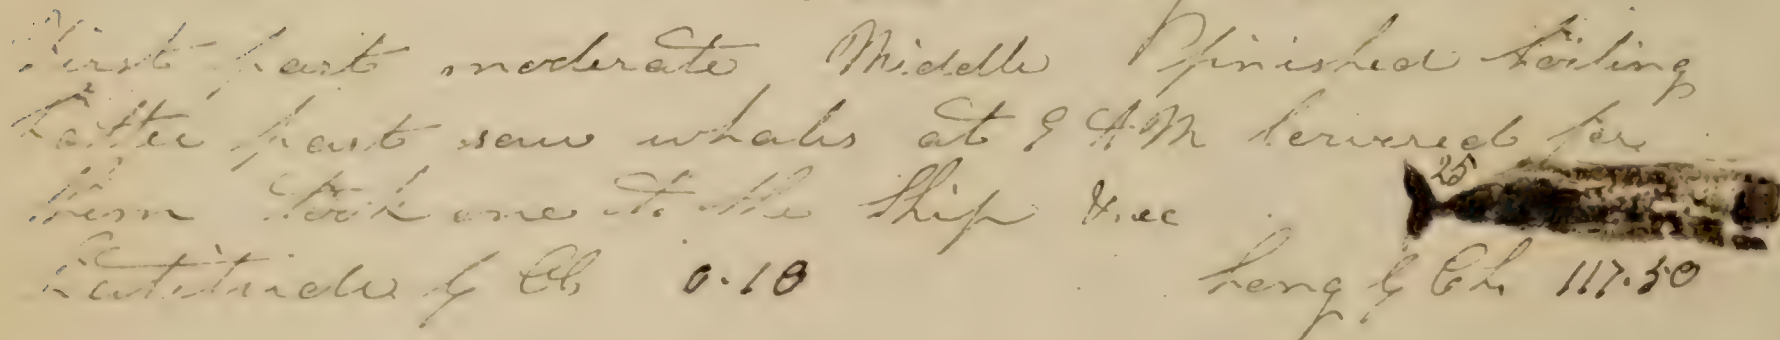 First part moderate Middle P finished boiling
Latter part saw whales at 9 AM lowered for
them took one to the Ship &.ec
25
Latitude by Ch 0.18 Long by Ch. 117.50